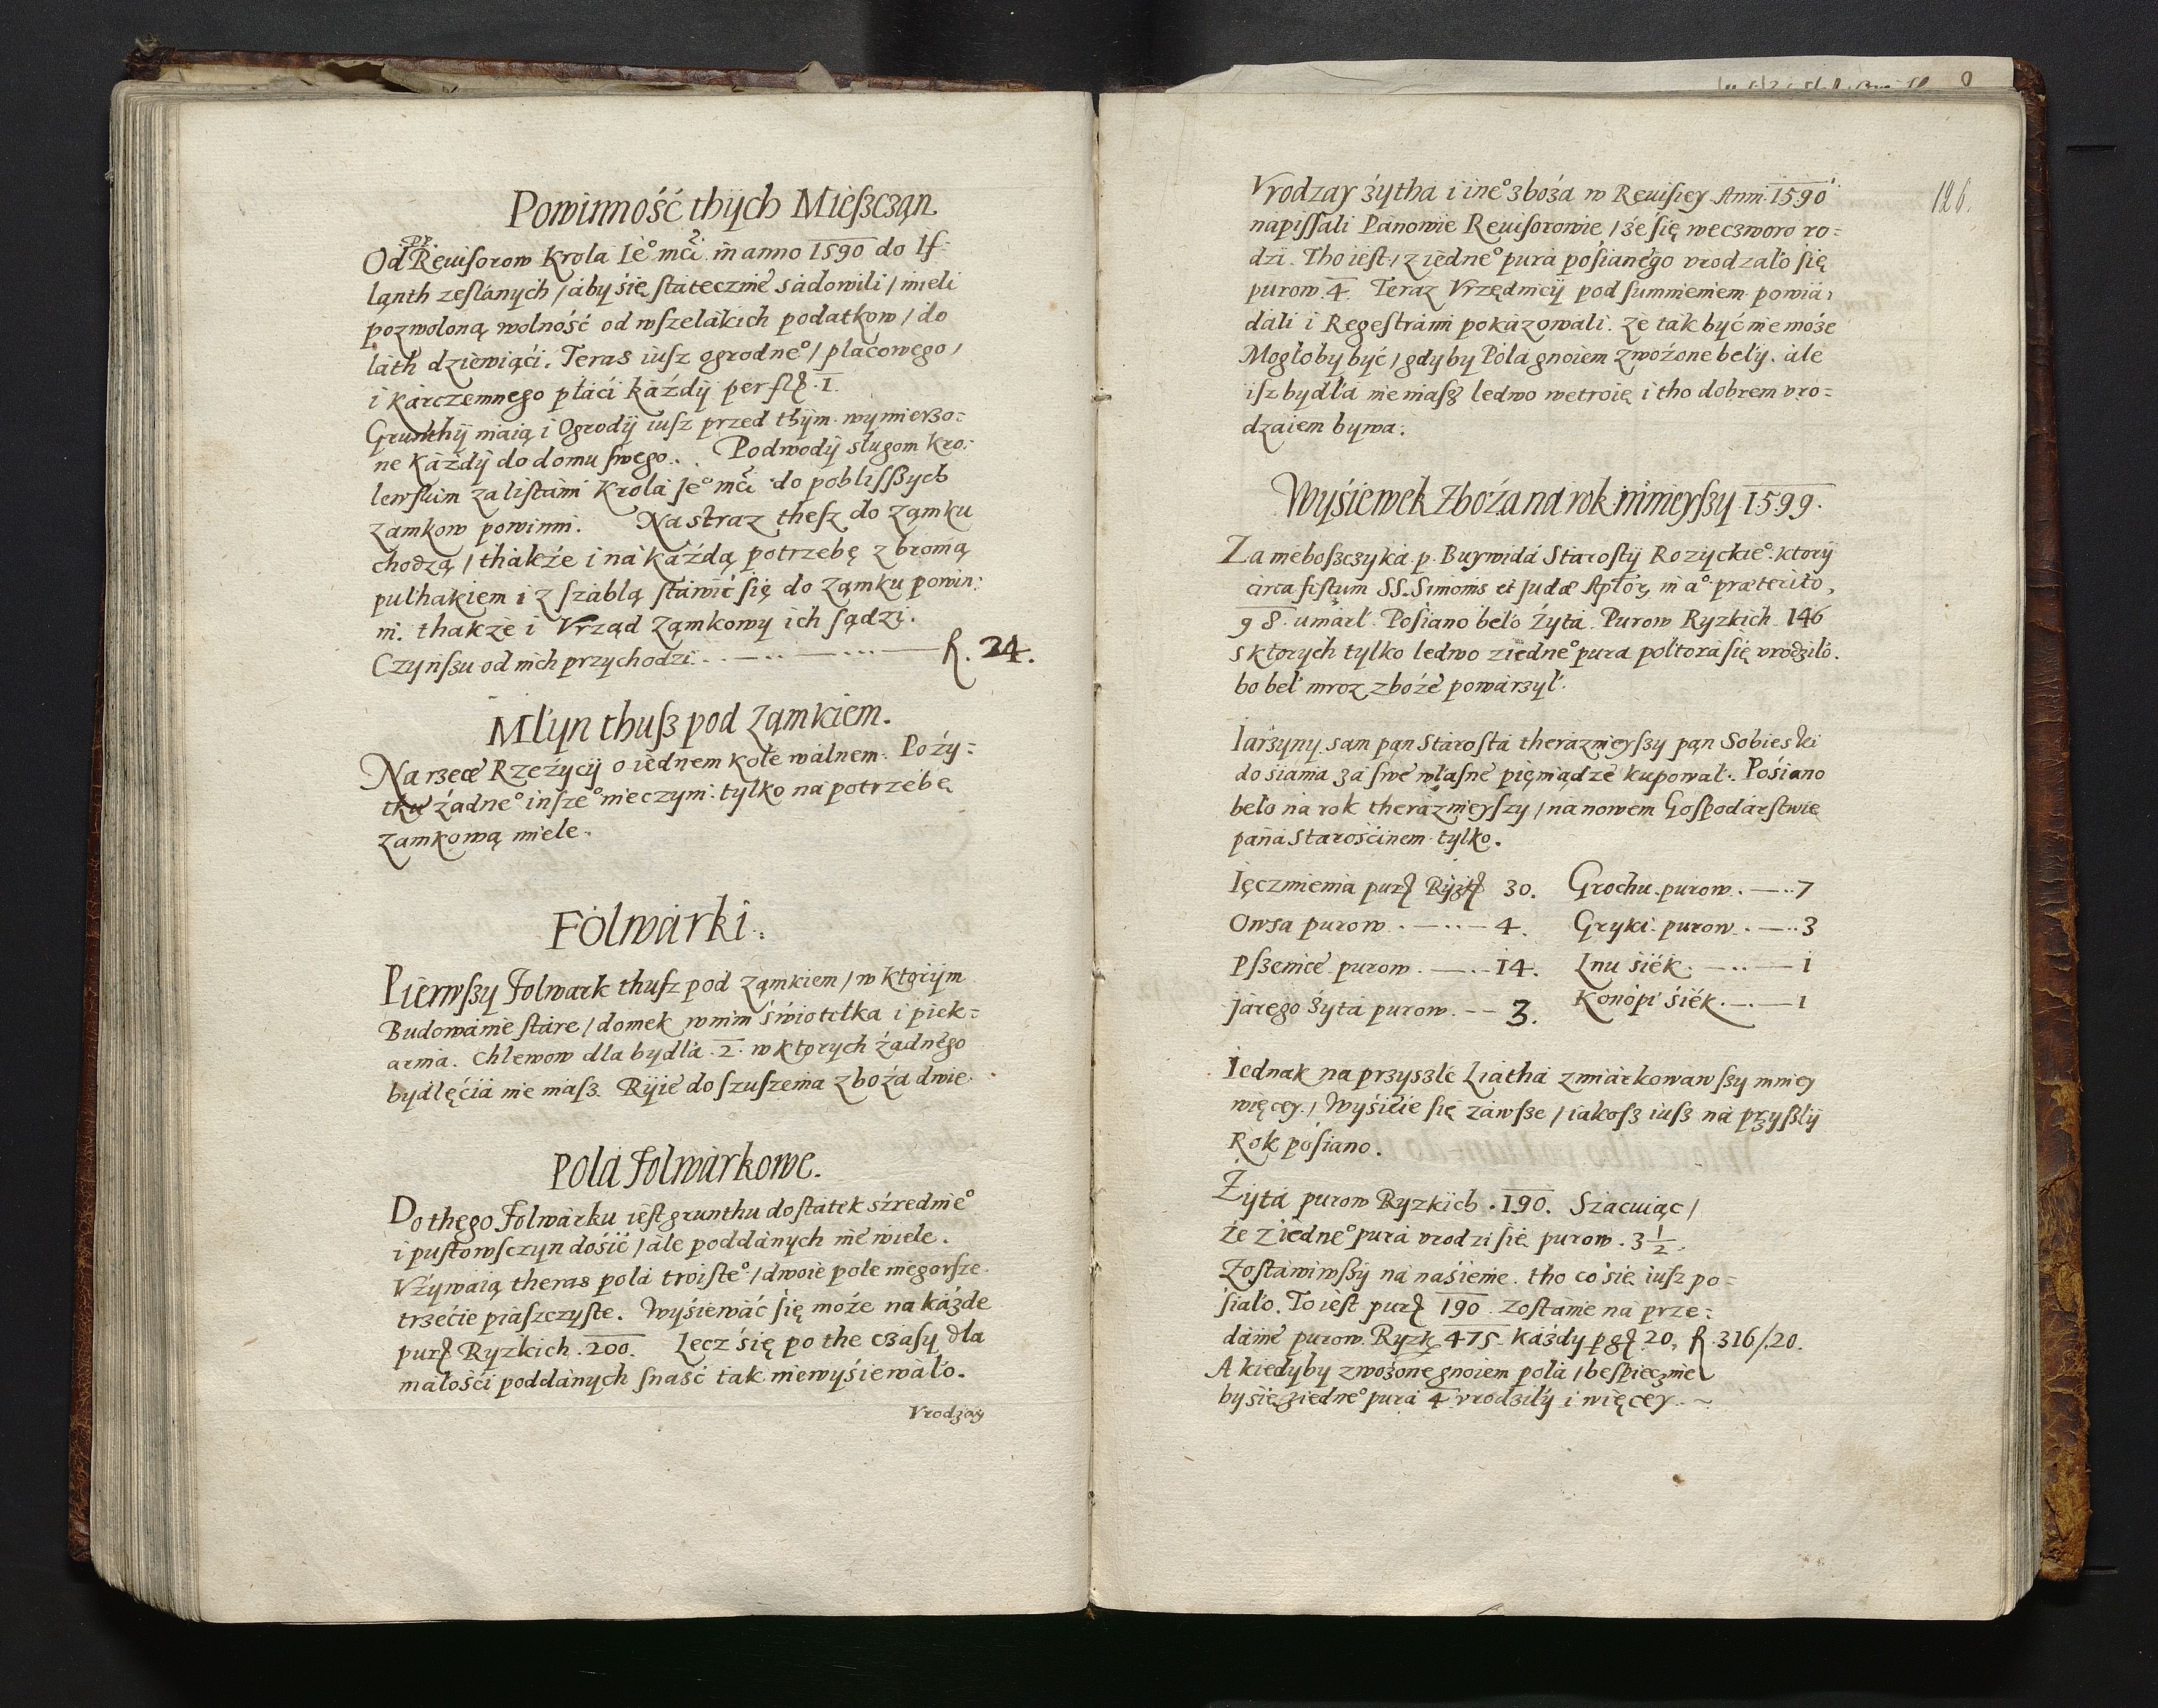 Powinność thych Mieſzcząn
Od PP. Reuiſorow Krola Ie° mći in anno 1590 do If-
lanth zeſłanych / aby się ſtatecznie sadowili / mieli
pozwoloną wolność od wſzelakich podatkow / do
lath dziewiąći. Teras iuſz ogrodne° / placowego /
i karczemnego płaći każdy per fl. 1.
Grunthy maią i Ogrody iuſz przed thym wymierzo-
ne każdy do domu ſwego. Podwody sługom Kro-
lewſkim za liſtami Krola Je° mći do pobliſſzych
zamkow powinni. Na straz theſz do Zamku
chodzą / thakże i na każdą potrzebę z bronią
pułhakiem i z ſzablą ſtawić się do Zamku powin:
ni. thakże i Vrząd Zamkowy ich ſądzi.
Czynſzu od nich przychodzi. f. 24.
Młyn thuſz pod Zamkiem.
Na rzece Rzeżycy o iednem kole walnem. Poży-
tku żadne° inſze° nieczyni. tylko na potrzebę
zamkową miele.
Folwarki.
Pierwſzy Folwark thuſz pod Zamkiem / w ktorym
Budowanie ſtare / domek w nim świotełka i piek-
arnia. Chlewow dla bydła 2. w ktorych żadnego
bydlęćia nie maſz. Ryie do szuſzenia zboża dwie.
Pola Folwarkowe.
Do thego Folwarku ieſt grunthu doſtatek śrzednie°
i puſtowſczyn dośić / ale poddanych nie wiele.
Vżywaią theras pola troiſte° / dwoie pole niegorſze
trzećie piaszczyſte. Wyśiewać się może na każde
pur. Ryzkich. 200. Lecz się po the czaſy dla
małośći poddanych ſnaść tak niewyśiewało.
Vrodzay
126.
Vrodzay żytha i ine° zboża w Reuiſiey Anni 1590
napiſſali Panowie Reuiſorowie / że się weczworo ro-
dzi. Tho ieſt / z iedne° pura poſianego vrodzało się
purow. 4. Teraz Vrzędnicy pod ſumnieniem powia-
dali i Regeſtrami pokazowali. że tak być nie może
Mogłoby być / gdyby Pola gnoiem zwożone beły. ale
iſz bydła nie maſz ledwo wetroię i tho dobrem vro-
dzaiem bywa.
Wyśiewek Zboża na rok ninieyſzy 1599.
Za nieboſzczyka p. Buywida Staroſty Rozyckie°. ktory
circa feſtum SS. Simonis et Judæ Aptor, in a° præterito,
98. umarł. Poſiano beło Żyta. Purow Ryzkich 146
s ktorych tylko ledwo ziedne° pura połtora się vrodziło.
bo beł mroz zboże powarzył.
Iarzyny sam pan Staroſta therazniey ſzy pan Sobieski
do siania za ſwe własne pięniądze kupował. Pośiano
beło na rok therazniey ſzy / na nowem Goſpodarſtwie
pana Starośćinem tylko.
Ięczmienia pur. Ryzk. 30. Grochu purow. 7
Owsa purow. 4. Gryki purow. 3
Pſzenice purow. 14. Lnu śiek. 1
Jarego żyta purow. 3. Konopi śiek. 1
Iednak na przyszłe Liatha zmiarkowawſzy mniey
więcey / Wyśieie się zawſze / iakoſz iuſz na przyſzły
Rok pośiano.
Żyta purow Ryzkich. 190. Szacuiąc /
że z iedne° pura vrodzi się purow. 3 1/2.
Zoſtawiwſzy na naśienie. tho co sie iuſz po-
śiało. To ieſt pur. 190. zoſtanie na prze-
danie purow. Ryzk. 475. każdy p. g. 20, f. 316/.20.
A kiedyby zwożone gnoiem pola / beſpiecznie
by się ziedne° pura 4 vrodziły i więcey. ~